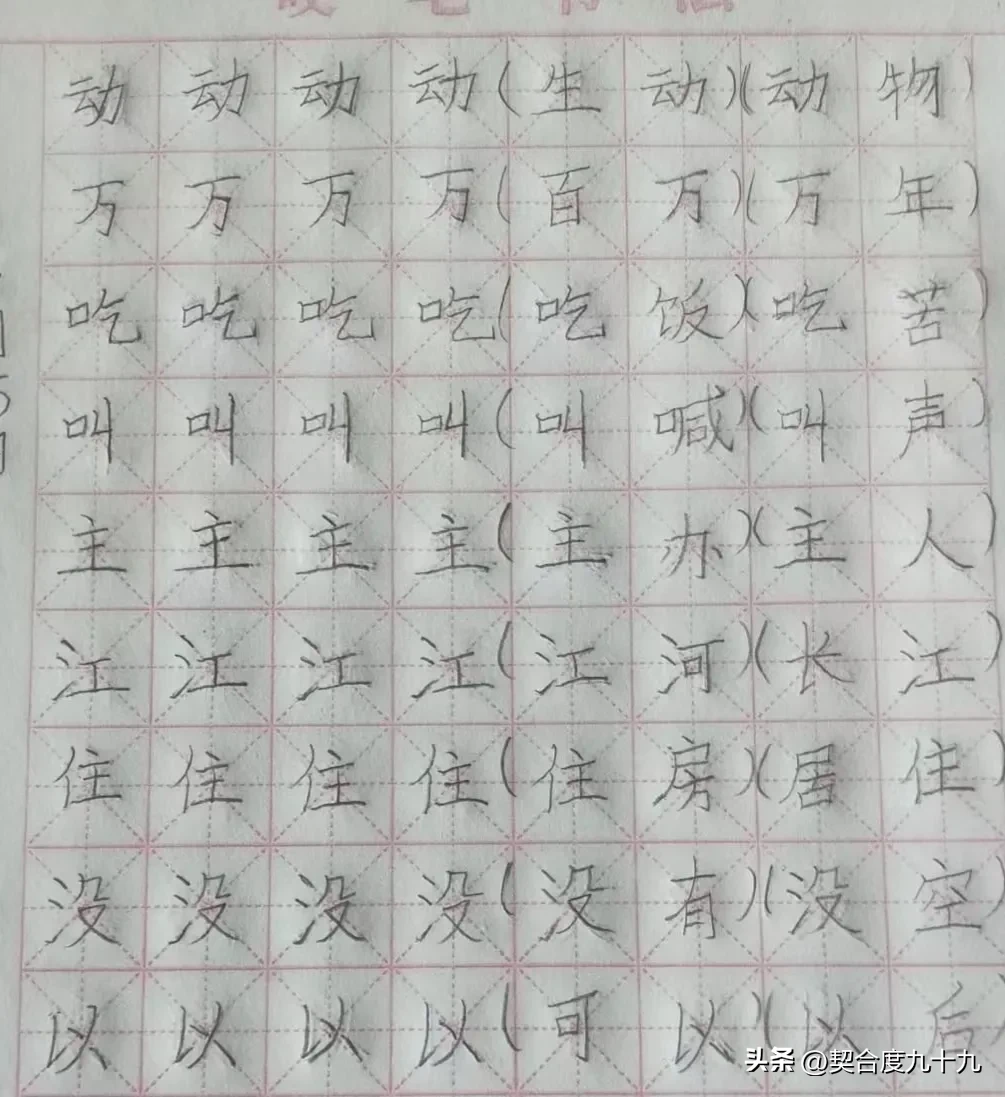 硬笔书法
动动动动(生动)(动物)
万万万万(百万)(万年)
吃吃吃吃(吃饭)(吃苦)
叫叫叫叫(叫喊)(叫声)
主主主主(主办)(主人)
江江江江(江河)(长江)
住住住住(住房)(居住)
没没没没(没有)(没空)
以以以以(可以)(以后)
头条 @契合度九十九